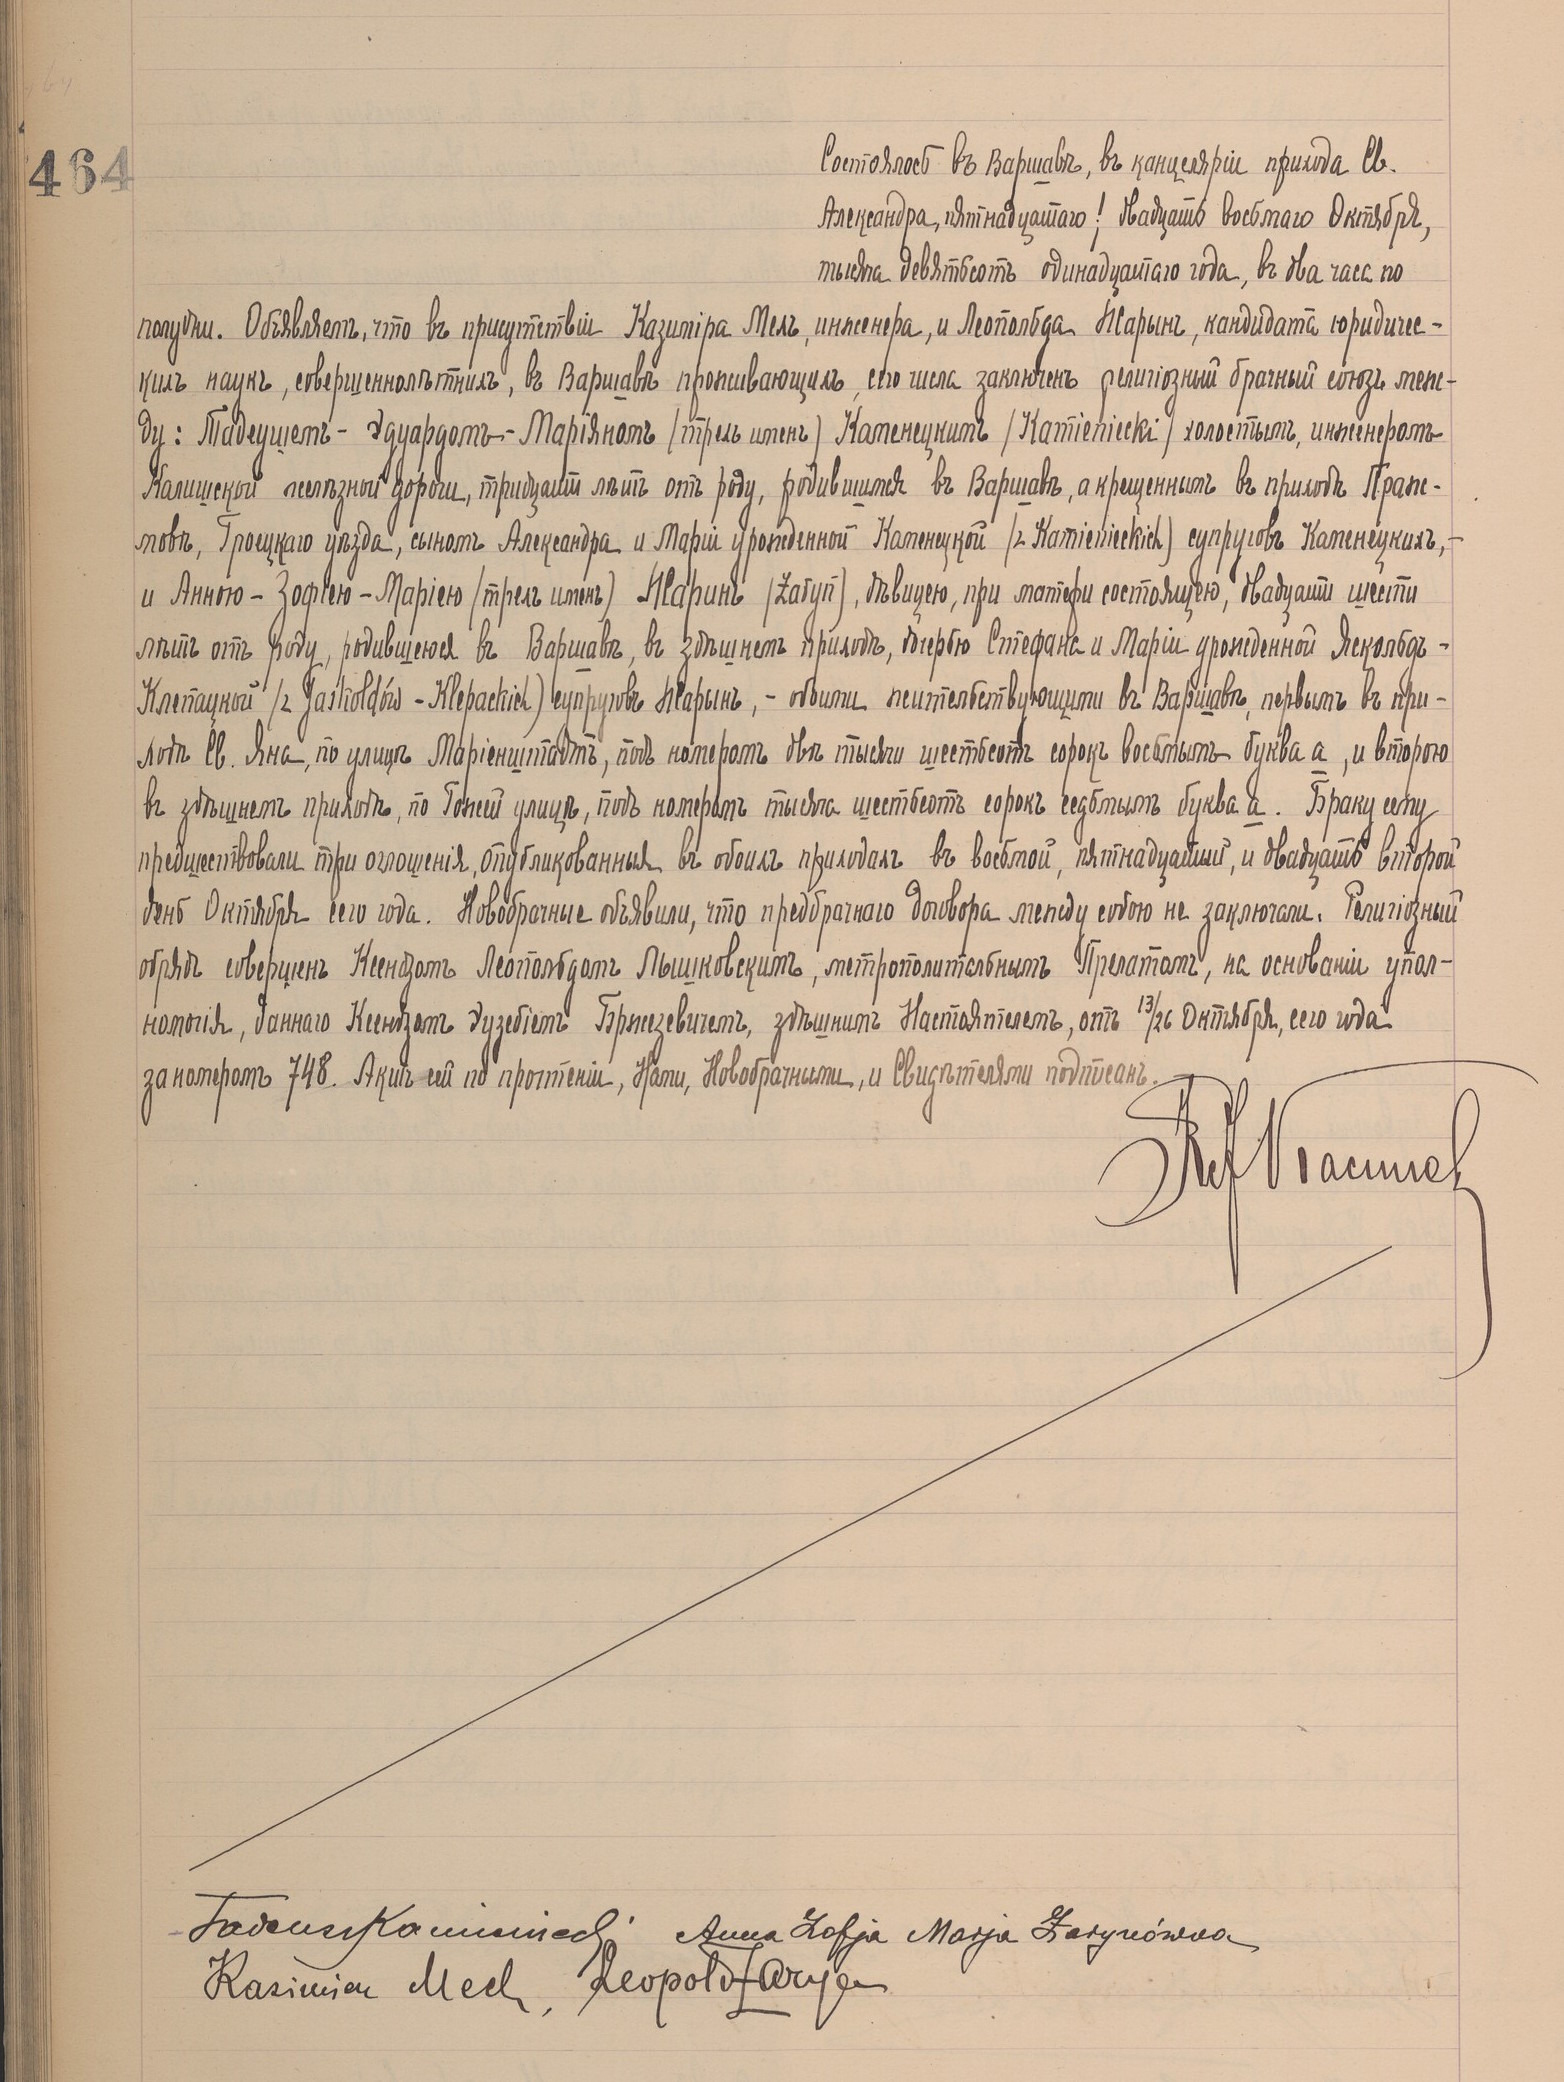 464
Состоялось въ Варшавѣ, въ канцеляріи прихода Св.
Александра, пятнадцатаго / двадцать восьмаго Октября,
тысяча девятьсотъ одинадцатаго года, въ два часа по
полудни. Объявляемъ, что въ присутствіи Казиміра Мехъ, инженера, и Леопольда Жарынъ, кандидата юридичес-
кихъ наукъ, совершеннолѣтнихъ, въ Варшавѣ проживающихъ, сего числа заключенъ религіозный брачный союзъ меж-
ду: Тадеушемъ - Эдуардомъ - Маріяномъ (трехъ именъ) Каменецкимъ (Kamieniecki) холостымъ, инженеромъ
Калишской желѣзной дороги, тридцати лѣтъ отъ роду, родившимся въ Варшавѣ, а крещеннымъ въ приходѣ Праж-
мовѣ, Гроецкаго уѣзда, сыномъ Александра и Маріи урожденной Каменецкой (z Kamienieckich) супруговъ Каменецкихъ, -
и Анною - Зофіею - Маріею (трехъ именъ) Жаринъ (Żaryn), дѣвицею, при матери состоящею, двадцати шести
лѣтъ отъ роду, родившеюся въ Варшавѣ, въ здѣшнемъ приходѣ, дочерью Стефана и Маріи урожденной Яскольдъ -
Клепацкой (z Jaskołdów - Klepackich) супруговъ Жарынъ, - обоими жительствующими въ Варшавѣ, первымъ въ при-
ходѣ Св. Яна, по улицѣ Маріенштадтъ, подъ номеромъ двѣ тысячи шестьсотъ сорокъ восьмымъ буква а, и второю
въ здѣшнемъ приходѣ, по Гожей улицѣ, подъ номеромъ тысяча шестьсотъ сорокъ седьмымъ буква а. Браку сему
предшествовали три оглошенія, опубликованныя въ обоихъ приходахъ въ восьмой, пятнадцатый, и двадцать второй
день Октября сего года. Новобрачные объявили, что предбрачнаго договора между собою не заключали. Религіозный
обрядъ совершенъ Ксендзомъ Леопольдомъ Лышковскимъ, метрополитальнымъ Прелатомъ, на основаніи упол-
номочія, даннаго Ксендзомъ Эузебіемъ Бржезевичемъ, здѣшнимъ Настоятелемъ, отъ 13/26 Октября, сего года
за номеромъ 748. Актъ сей по прочтеніи, Нами, Новобрачными, и Свидѣтелями подписанъ.
Tadeusz Kamieniecki Anna Zofja Marja Żarynówna
Kazimierz Mech, Leopold Żaryn